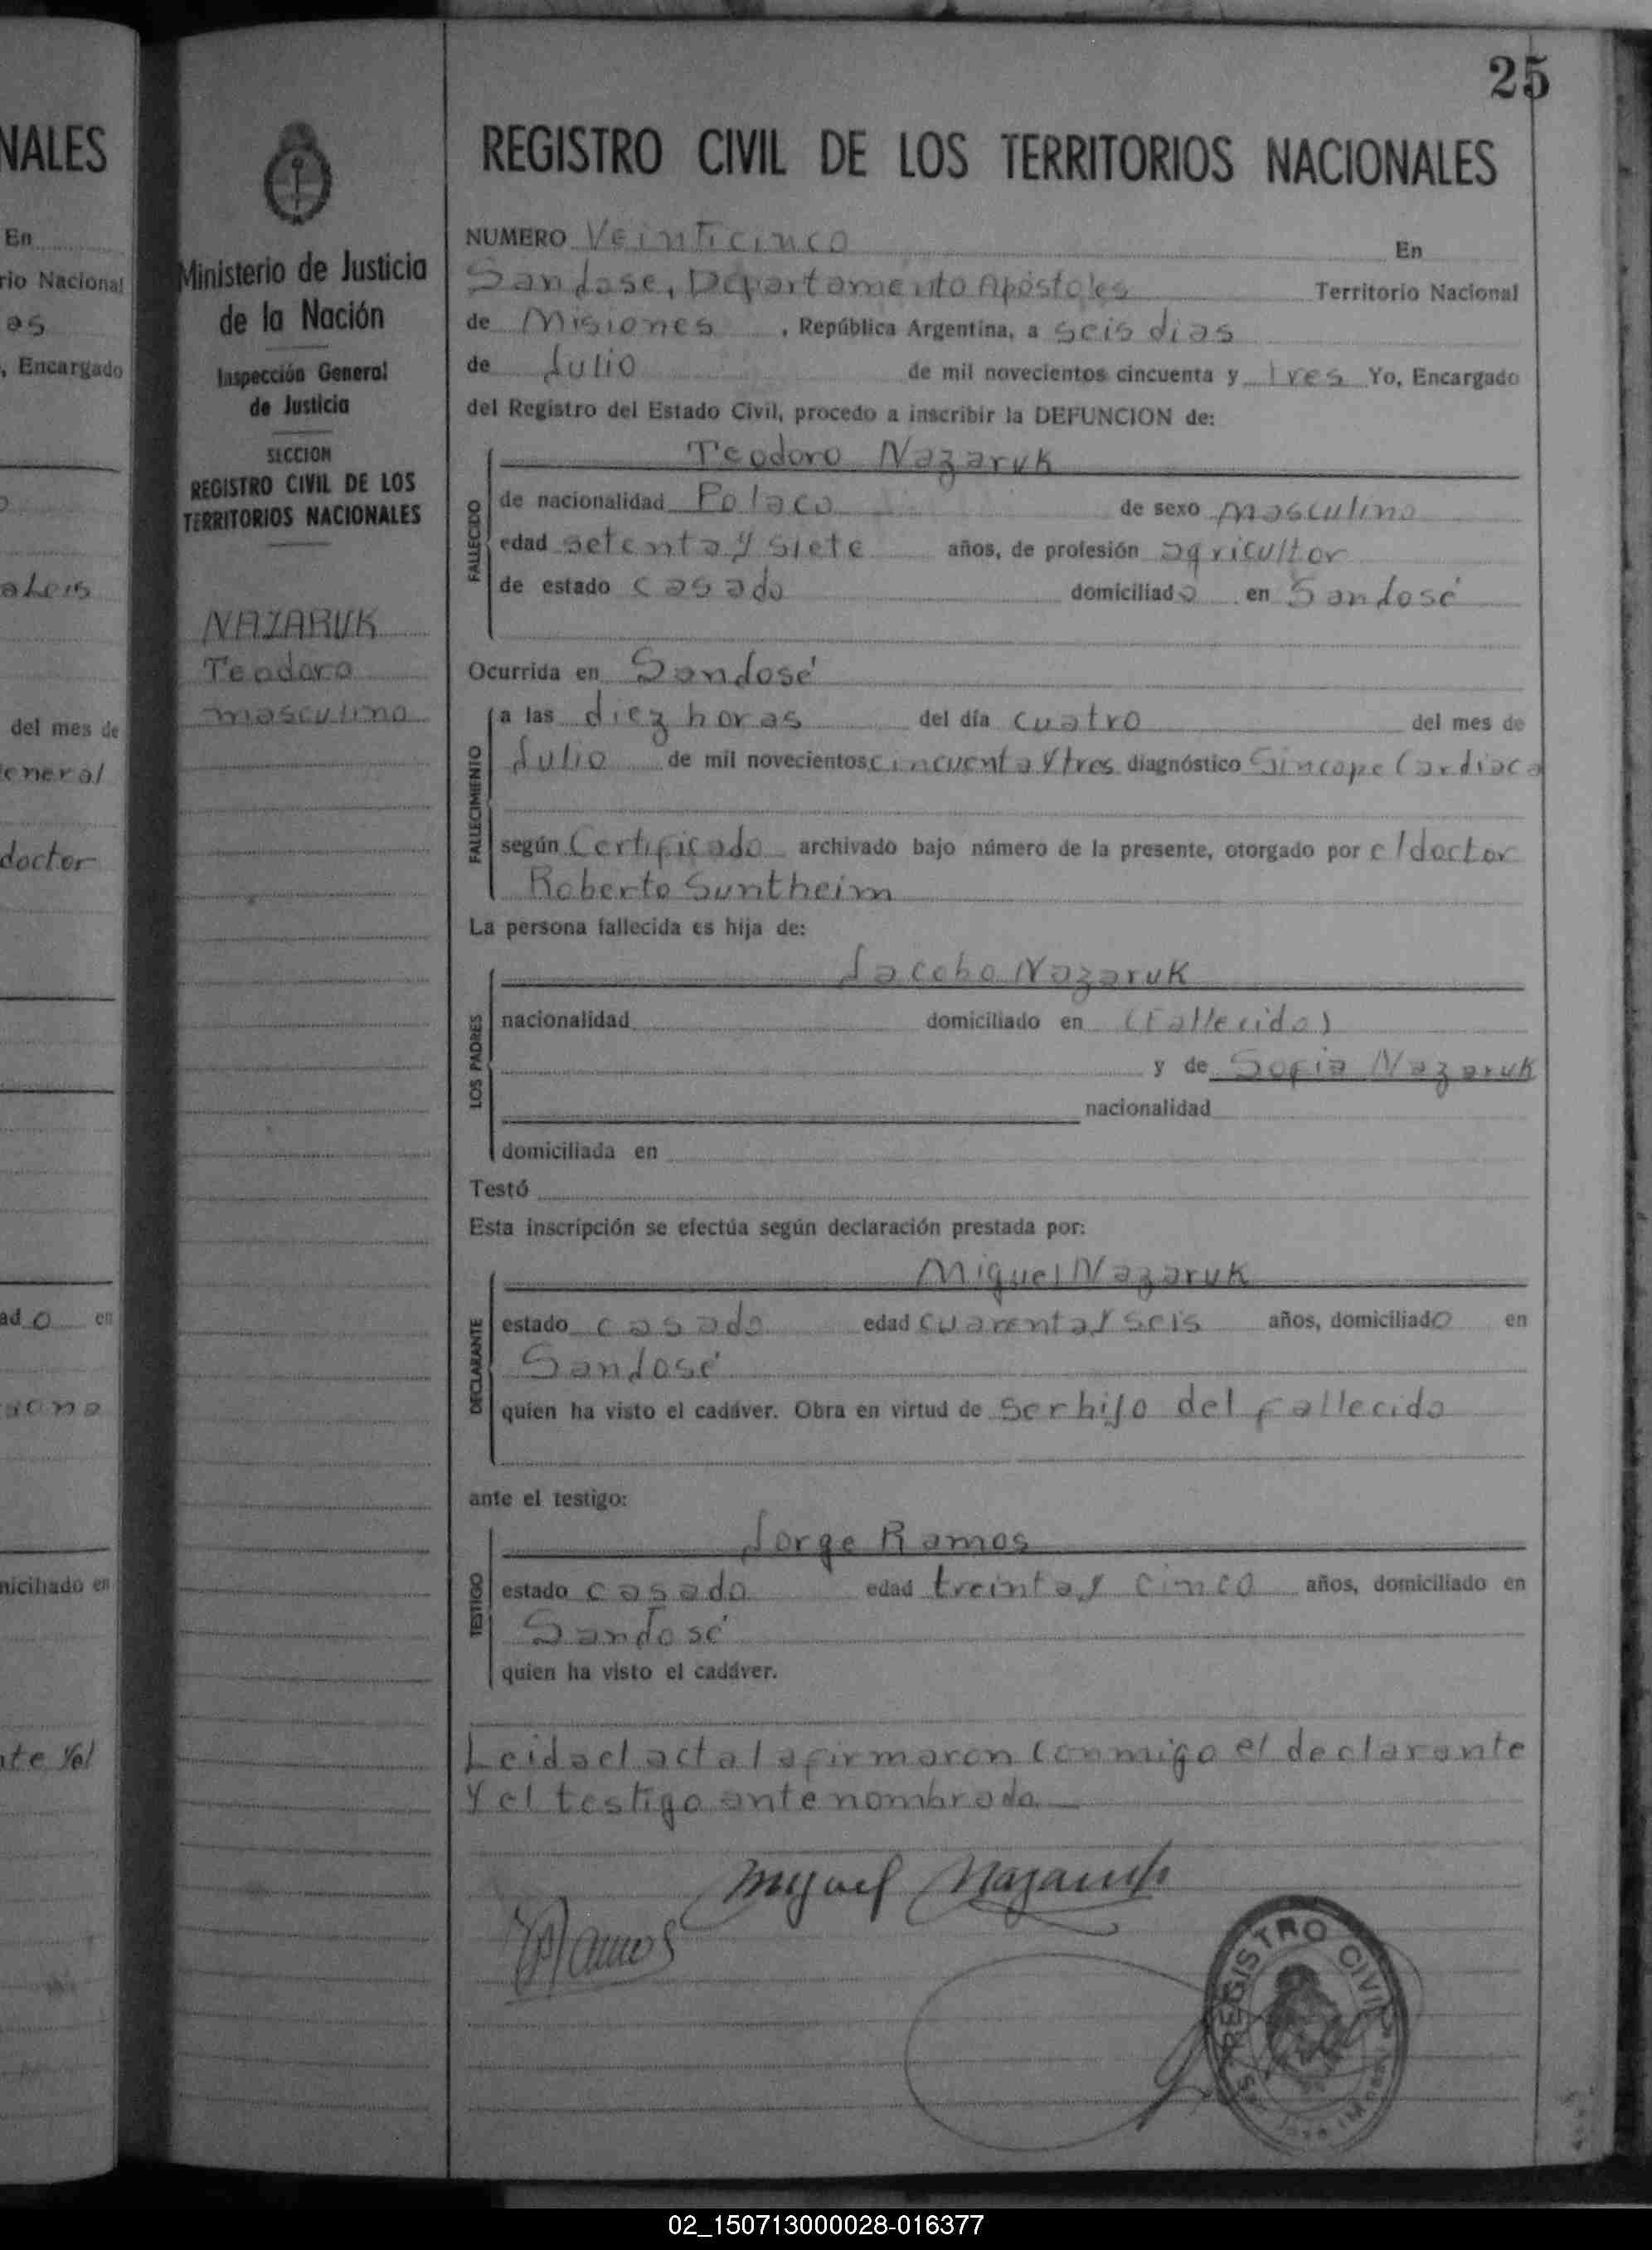 25
NALES
En
rio Nacional
as
, Encargado
del mes de
eneral
doctor
ado en
niciliado en
te y el
Ministerio de Justicia
de la Nación
Inspección General
de Justicia
SECCION
REGISTRO CIVIL DE LOS
TERRITORIOS NACIONALES
NAZARUK
Teodoro
masculino
REGISTRO CIVIL DE LOS TERRITORIOS NACIONALES
NUMERO Veinticinco En
San Jose, Departamento Apóstoles Territorio Nacional
de Misiones , República Argentina, a seis dias
de Julio de mil novecientos cincuenta y tres Yo, Encargado
del Registro del Estado Civil, procedo a inscribir la DEFUNCION de:
FALLECIDO
Teodoro Nazaruk
de nacionalidad Polaco de sexo masculino
edad setenta y siete años, de profesión agricultor
de estado casado domiciliado en San José
Ocurrida en San José
FALLECIMIENTO
a las diez horas del día cuatro del mes de
Julio de mil novecientos cincuenta y tres diagnóstico Sincope Cardiaca
según Certificado archivado bajo número de la presente, otorgado por el doctor
Roberto Suntheim
La persona fallecida es hija de:
LOS PADRES
Jacobo Nazaruk
nacionalidad domiciliado en (Fallecido)
y de Sofia Nazaruk
nacionalidad
domiciliada en
Testó
Esta inscripción se efectúa según declaración prestada por:
DECLARANTE
Miguel Nazaruk
estado casado edad cuarenta y seis años, domiciliado en
San José
quien ha visto el cadáver. Obra en virtud de ser hijo del fallecido
ante el testigo:
TESTIGO
Jorge Ramos
estado casado edad treinta y cinco años, domiciliado en
San José
quien ha visto el cadáver.
Leida el acta la firmaron conmigo el declarante
y el testigo antenombrado
Miguel Nazaruk
Ramos
REGISTRO CIVIL
02_150713000028-016377